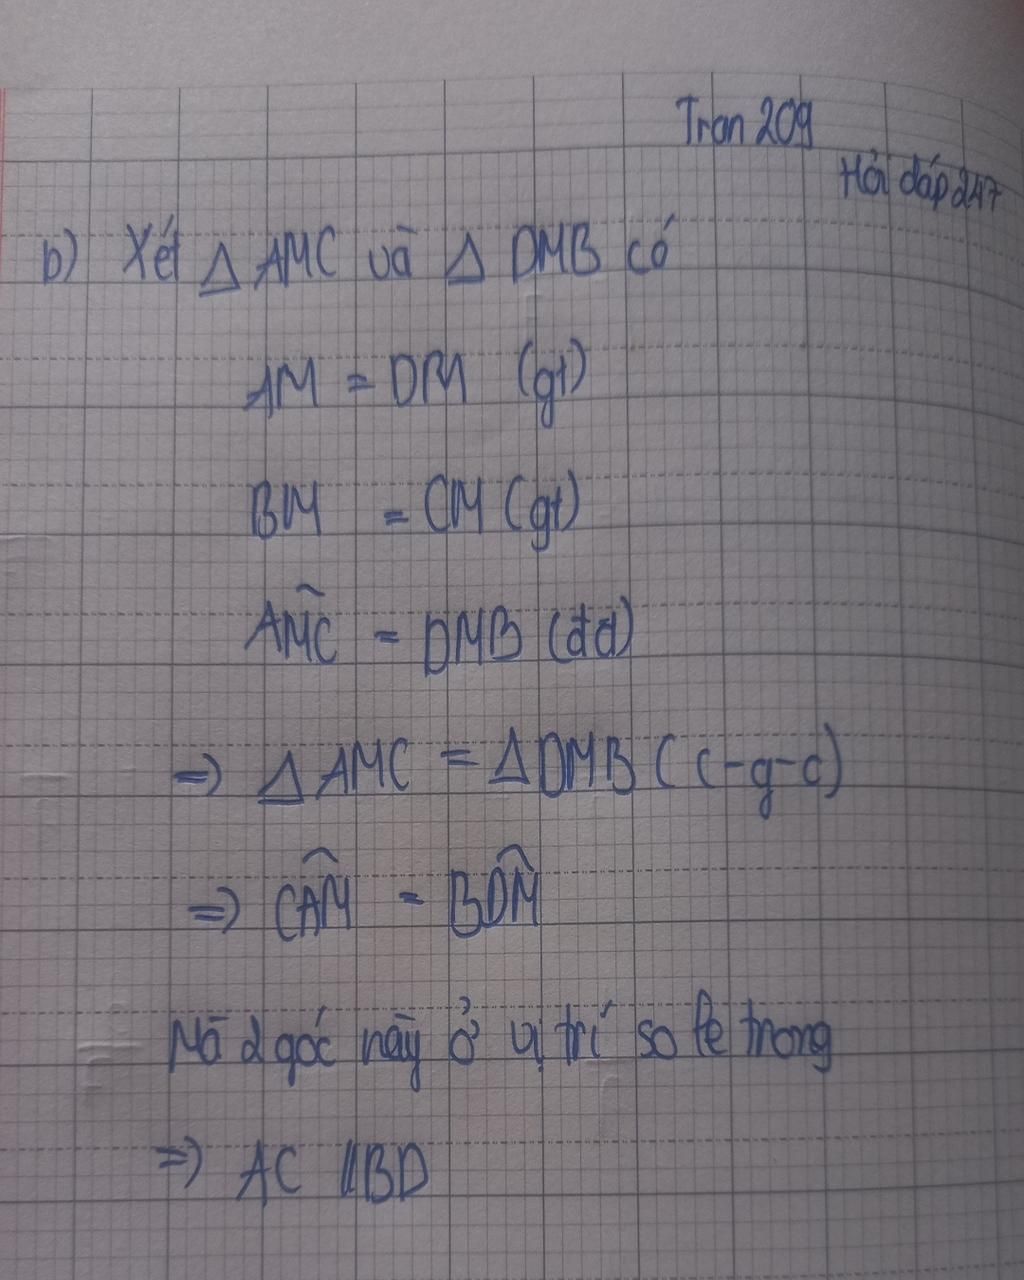 Tran 209
Hỏi đáp 247
b) Xét Δ AMC và Δ DMB có
AM = DM (gt)
BM = CM (gt)
AM̂C = DMB (đđ)
=> Δ AMC = Δ DMB (c-g-c)
=> CÂM = BD̂M
Mà 2 góc này ở vị trí so le trong
=> AC // BD